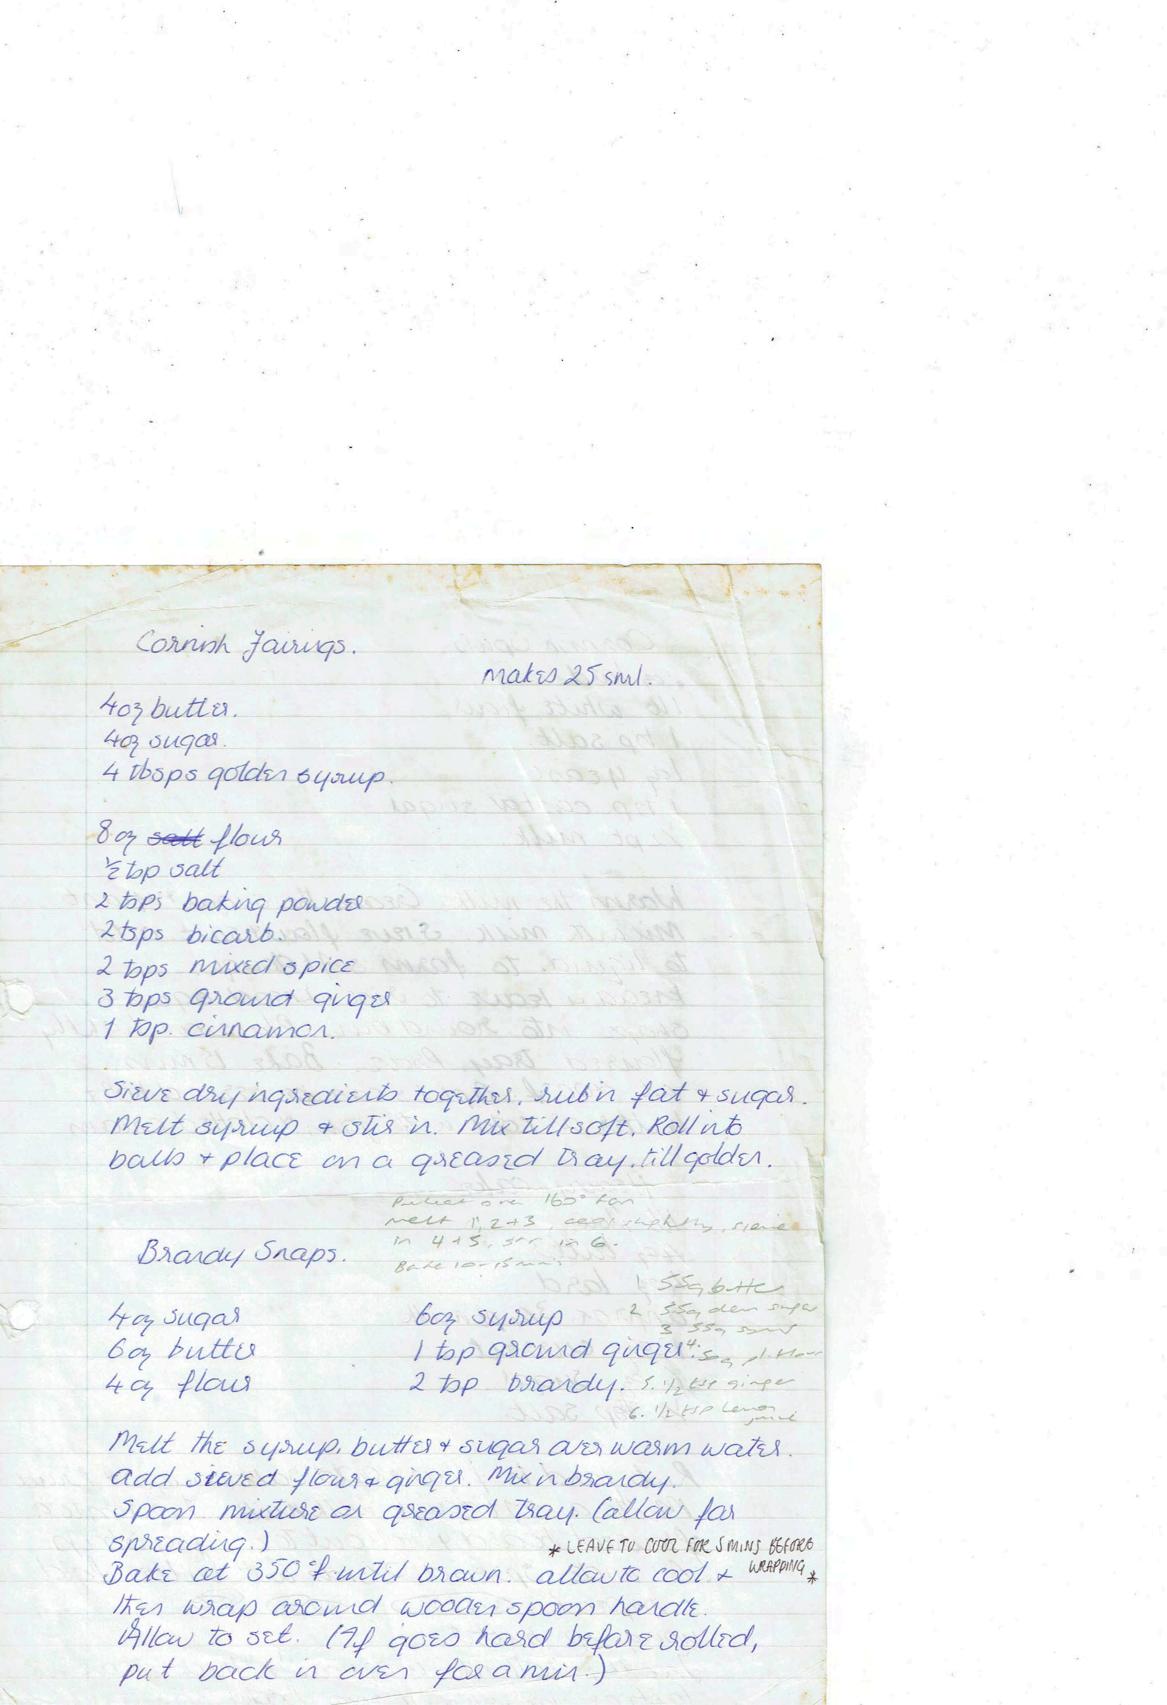 Cornish Fairings.
makes 25 sml.
4oz butter.
4oz sugar.
4 tbsps golden syrup.
8oz salt flour
½ tsp salt
2 tsps baking powder
2 tsps bicarb.
2 tsps mixed spice
3 tsps ground ginger
1 tsp. cinnamon.
Sieve dry ingredients together. rub in fat + sugar.
Melt syrup + stir in. Mix till soft. Roll into
balls + place on a greased tray. till golden.
Preheat oven 160° fan
melt 1, 2 + 3, cool slightly, sieve
in 4 + 5. stir in 6.
Bake 10-15 mins.
Brandy Snaps.
1 55g butter
2 55g dem sugar
3 55g syrup
4. 50g pl flour
5. 1/2 tsp ginger
6. 1/2 tsp lemon
juice
4oz sugar 6oz syrup
6oz butter 1 tsp ground ginger
4oz flour 2 tsp brandy.
Melt the syrup, butter + sugar over warm water.
add sieved flour + ginger. Mix in brandy.
Spoon mixture on greased tray. (allow for
spreading.)
* LEAVE TO COOL FOR 5 MINS BEFORE
WRAPPING *
Bake at 350°f until brown. allow to cool +
then wrap around wooden spoon handle.
Allow to set. (If goes hard before rolled,
put back in oven for a min.)